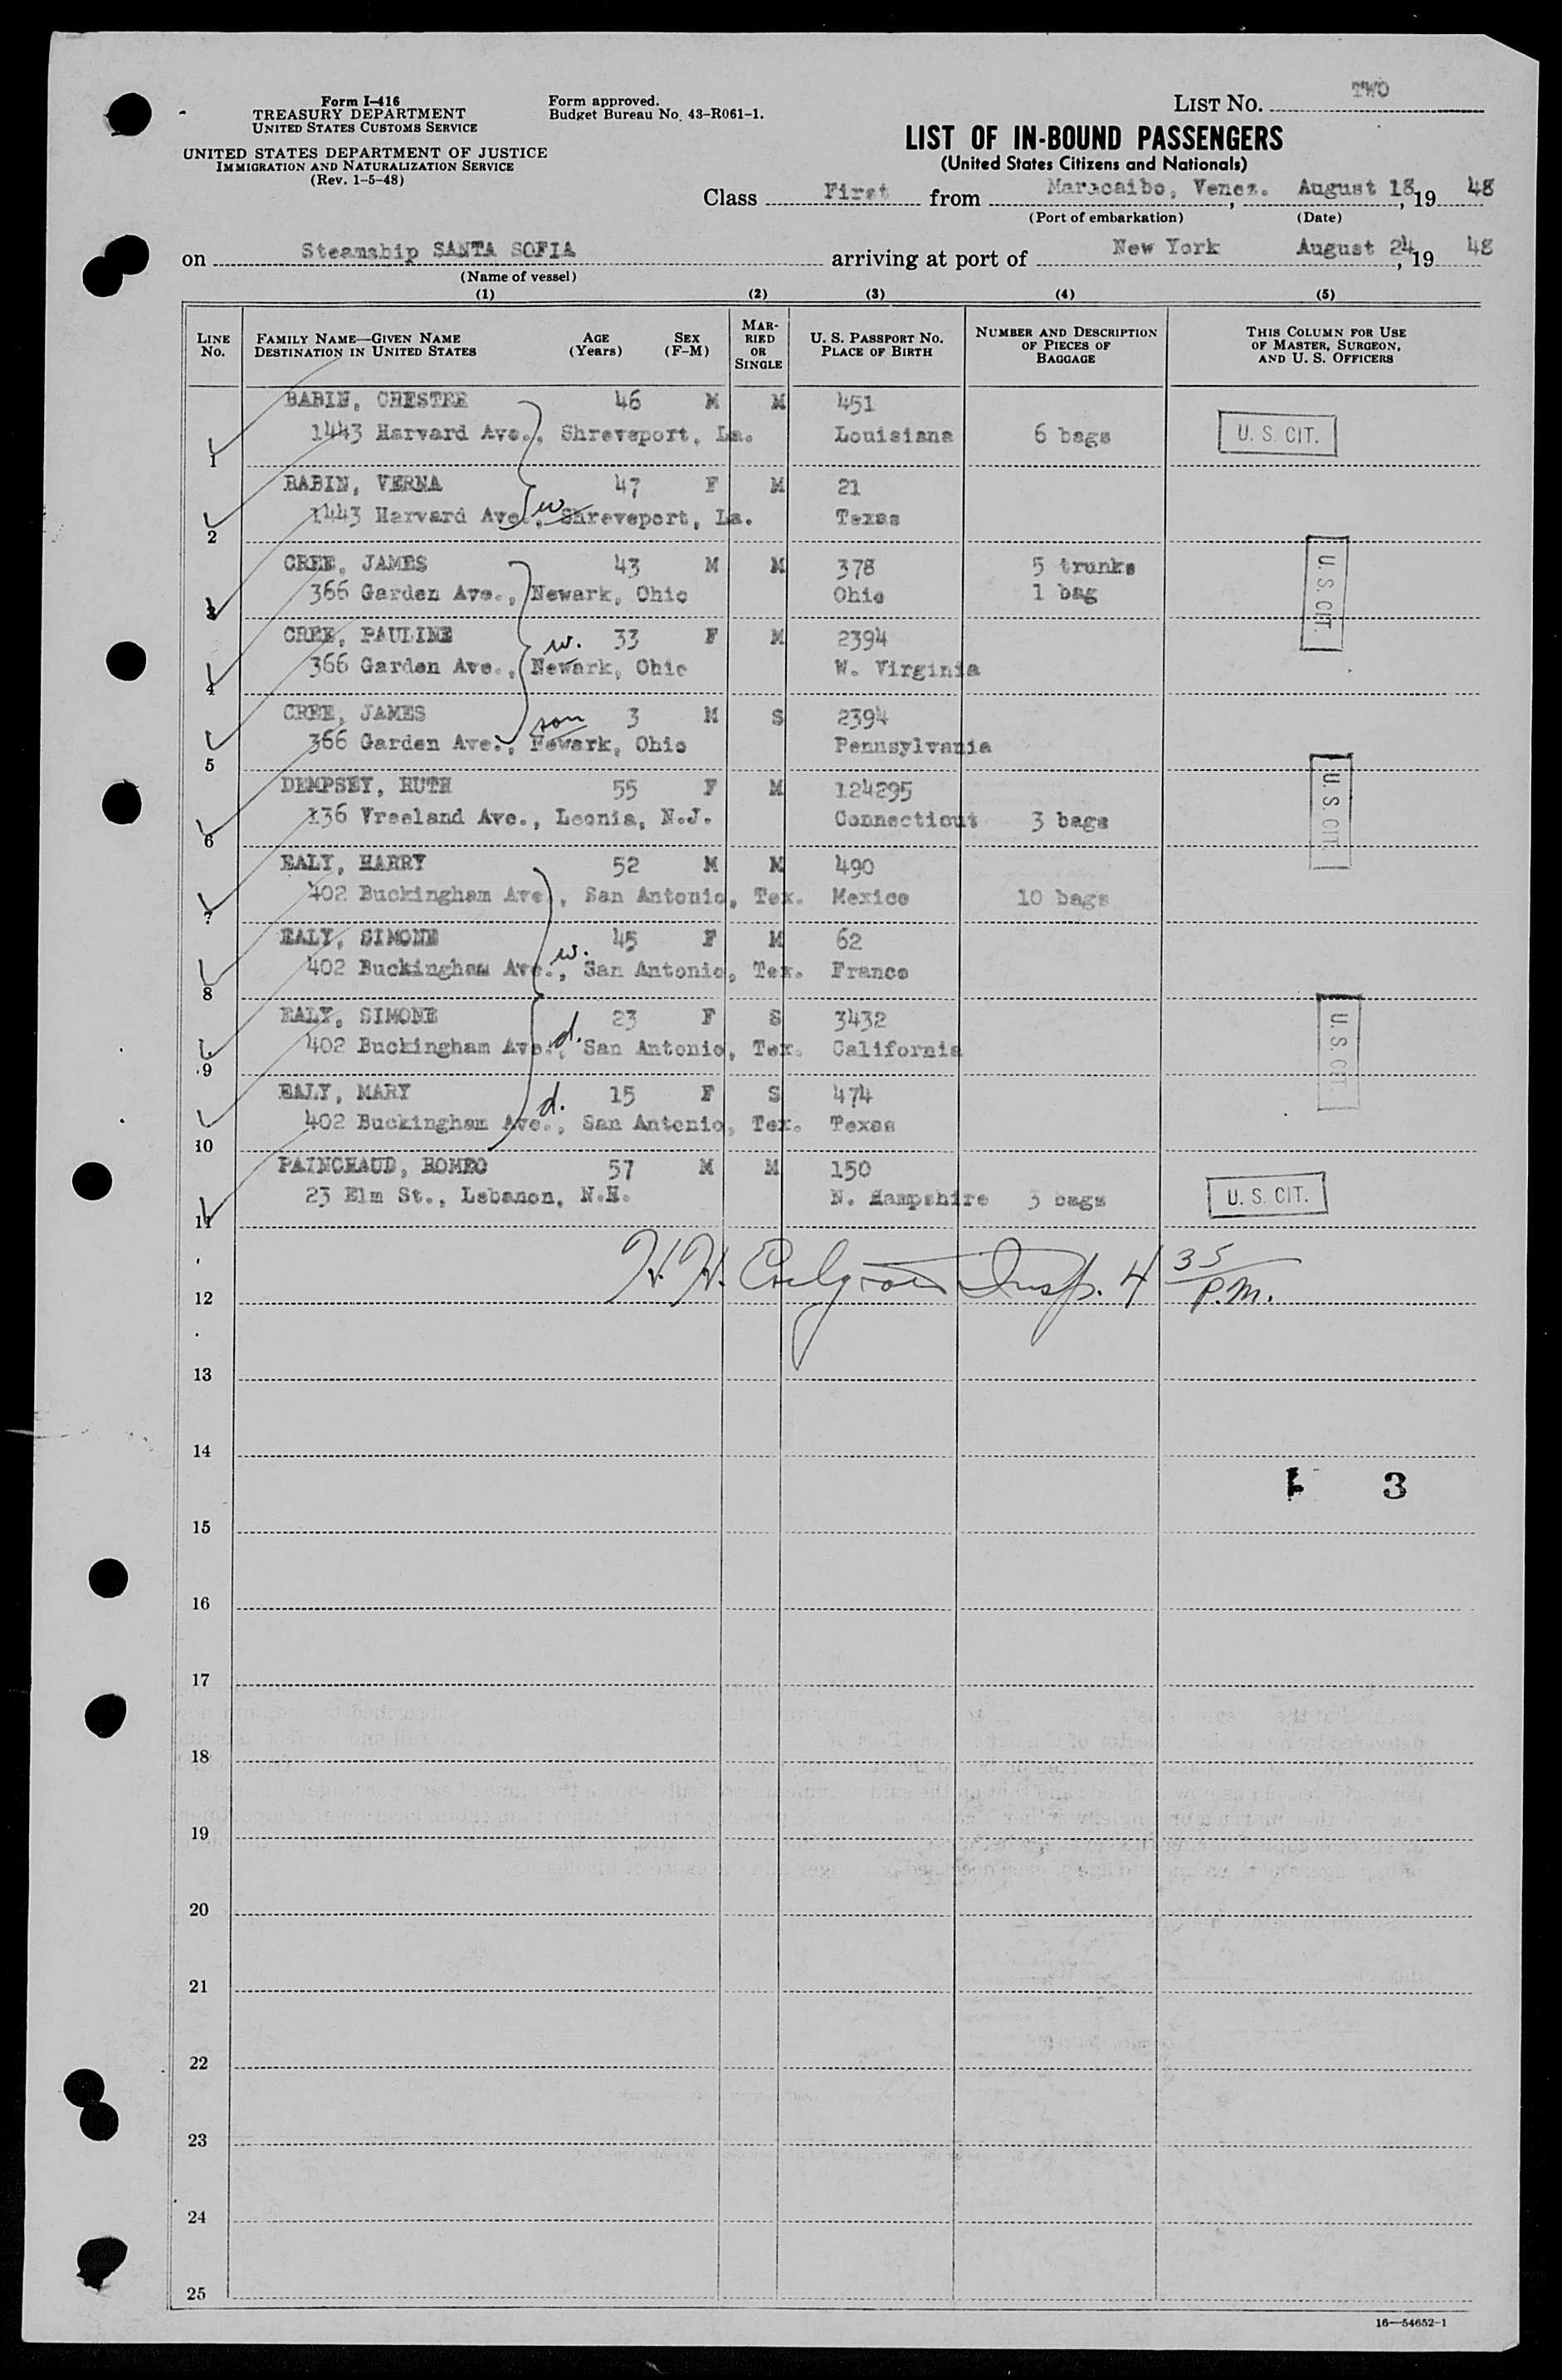 Form I-416
TREASURY DEPARTMENT
UNITED STATES CUSTOMS SERVICE
UNITED STATES DEPARTMENT OF JUSTICE
IMMIGRATION AND NATURALIZATION SERVICE
(Rev. 1-5-48)
Form approved.
Budget Bureau No. 43-R061-1.
LIST NO. TWO
LIST OF IN-BOUND PASSENGERS
(United States Citizens and Nationals)
Class First from Maracaibo, Venez. , August 18, 19 48
(Port of embarkation) (Date)
on Steamship SANTA SOFIA arriving at port of New York August 24, 19 48
(Name of vessel)
(1) (2) (3) (4) (5)
LINE No. FAMILY NAME—GIVEN NAME DESTINATION IN UNITED STATES AGE (Years) SEX (F-M) MARRIED OR SINGLE U. S. PASSPORT NO. PLACE OF BIRTH NUMBER AND DESCRIPTION OF PIECES OF BAGGAGE THIS COLUMN FOR USE OF MASTER, SURGEON, AND U. S. OFFICERS
BABIN, CHESTER 46 M M 451
1 1443 Harvard Ave., Shreveport, La. Louisiana 6 bags U. S. CIT.
BABIN, VERNA 47 F M 21
2 1443 Harvard Ave., w Shreveport, La. Texas
CREE, JAMES 43 M M 378 5 trunks
3 366 Garden Ave., Newark, Ohio Ohio 1 bag U. S. CIT.
CREE, PAULINE w. 33 F M 2394
4 366 Garden Ave., Newark, Ohio W. Virginia
CREE, JAMES son 3 M S 2394
5 366 Garden Ave., Newark, Ohio Pennsylvania
DEMPSEY, RUTH 55 F M 124295
6 136 Vreeland Ave., Leonia, N.J. Connecticut 3 bags U. S. CIT.
EALY, HARRY 52 M M 490
7 402 Buckingham Ave., San Antonio, Tex. Mexico 10 bags
EALY, SIMONE w. 45 F M 62
8 402 Buckingham Ave., San Antonio, Tex. France
EALY, SIMONE d. 23 F S 3432
9 402 Buckingham Ave., San Antonio, Tex. California U. S. CIT.
EALY, MARY d. 15 F S 474
10 402 Buckingham Ave., San Antonio, Tex. Texas
PAINCHAUD, ROMEO 57 M M 150
11 23 Elm St., Lebanon, N.H. N. Hampshire 3 bags U. S. CIT.
H. H. Insp. 4 35 P.M.
12
13
14
3
15
16
17
18
19
20
21
22
23
24
25
16—54652-1